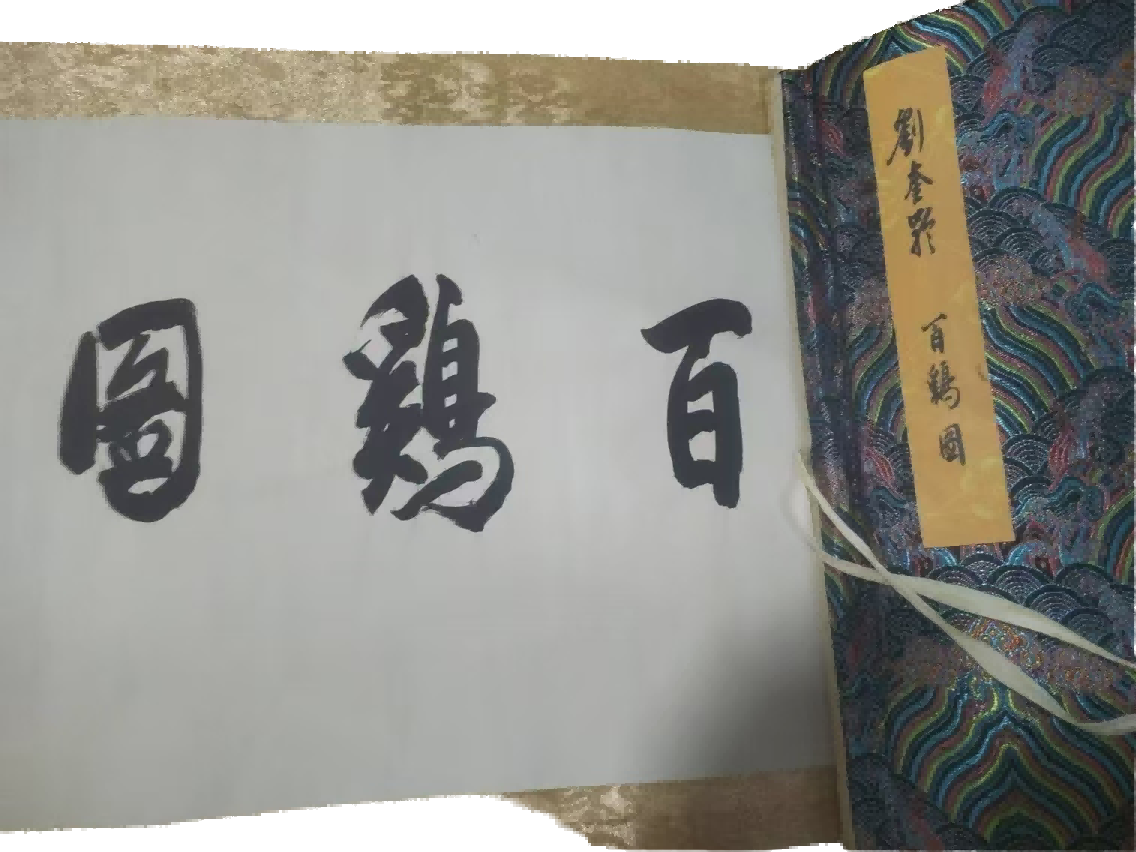 劉奎齡 百鷄圖
百鷄圖